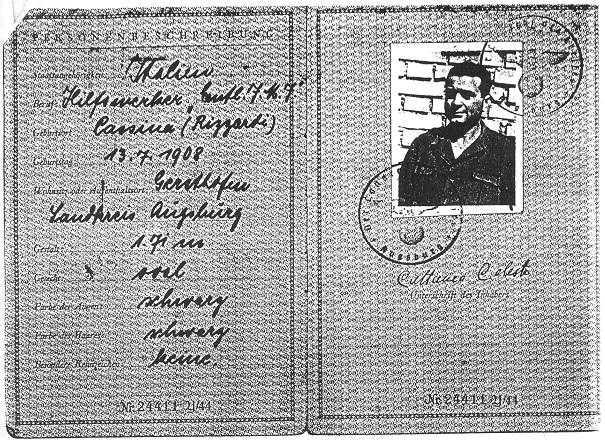 PERSONENBESCHREIBUNG
Staatsangehörigkeit: Italien
Beruf: Hilfswerker, "entl. I.M.I"
Geburtsort: Cassina (Rizzardi)
Geburtstag: 13.7.1908
Wohnsitz oder Aufenthaltsort: Gersthofen
Landkreis Augsburg
Gestalt: 1.71 m
Gesicht: oval
Farbe der Augen: schwarz
Farbe der Haare: schwarz
Besondere Kennzeichen: keine.
Nr. 24411 21/44
Augsburg
Cattaneo Celeste
Unterschrift des Inhabers
Nr. 24411 21/44